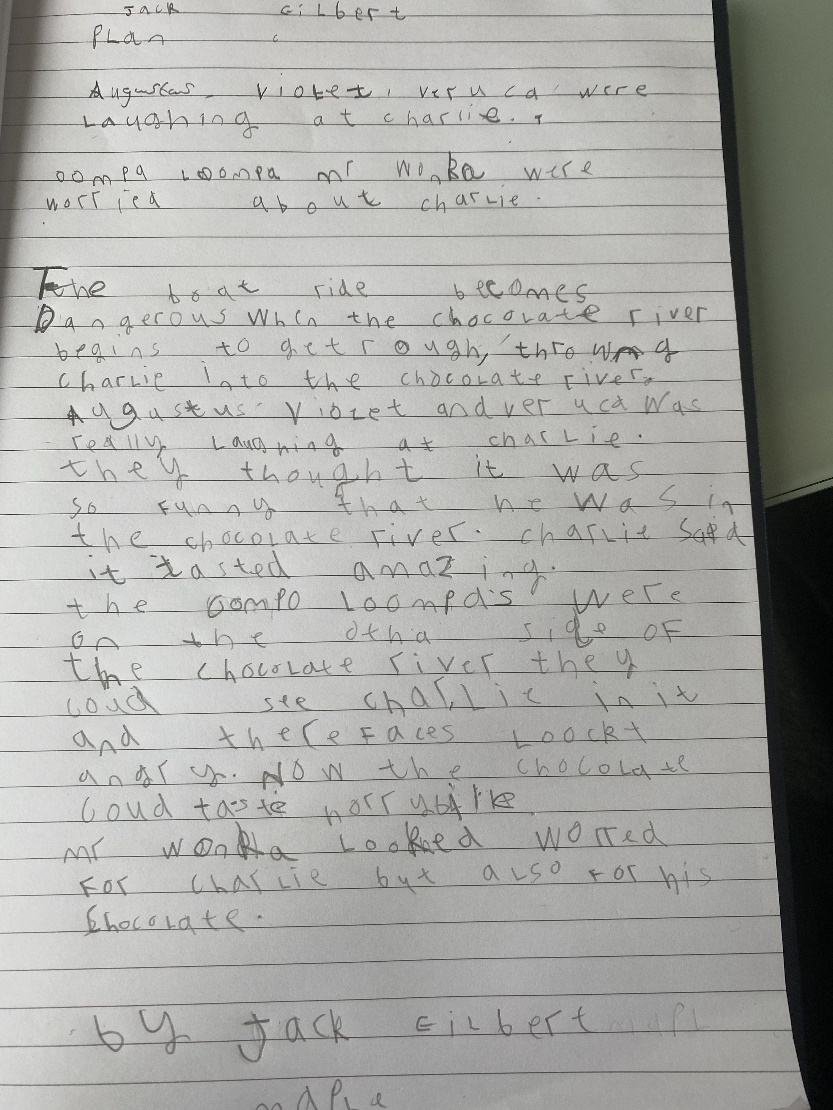 Jack Gilbert
Plan
Augustus. Violet, veruca were
Laughing at charlie.
oompa Loompa mr Wonka were
worried about charlie.
The boat ride becomes
Dangerous when the chocolate river
begins to get rough, throwing
Charlie into the chocolate river.
Augustus Violet and veruca was
really Laughing at charlie.
they thought it was
so funny that he was in
the chocolate river. charlie said
it tasted amazing.
the oompo Loompa's were
on the otha side of
the chocolate river they
coud see charlie in it
and there faces Loockt
angry. Now the chocolate
coud taste
mr wonka Looked worred
For charlie but also For his
Chocolate.
by Jack Gilbert
maple